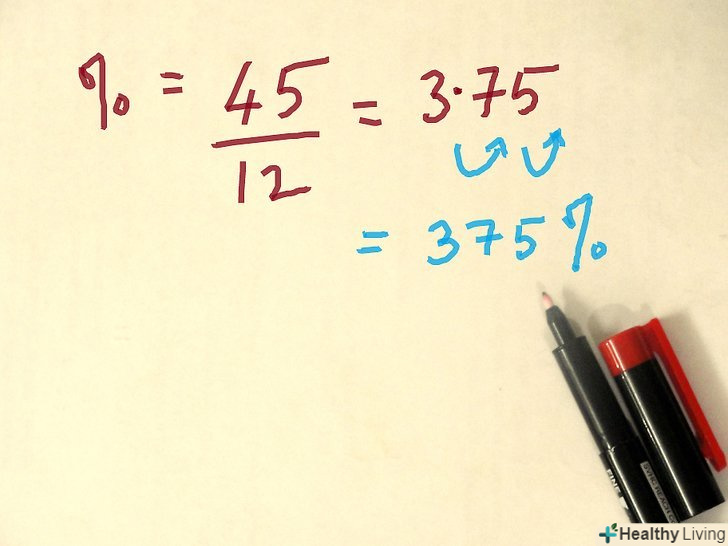 % = 45/12 = 3.75
= 375%
FINE
Healthy Living